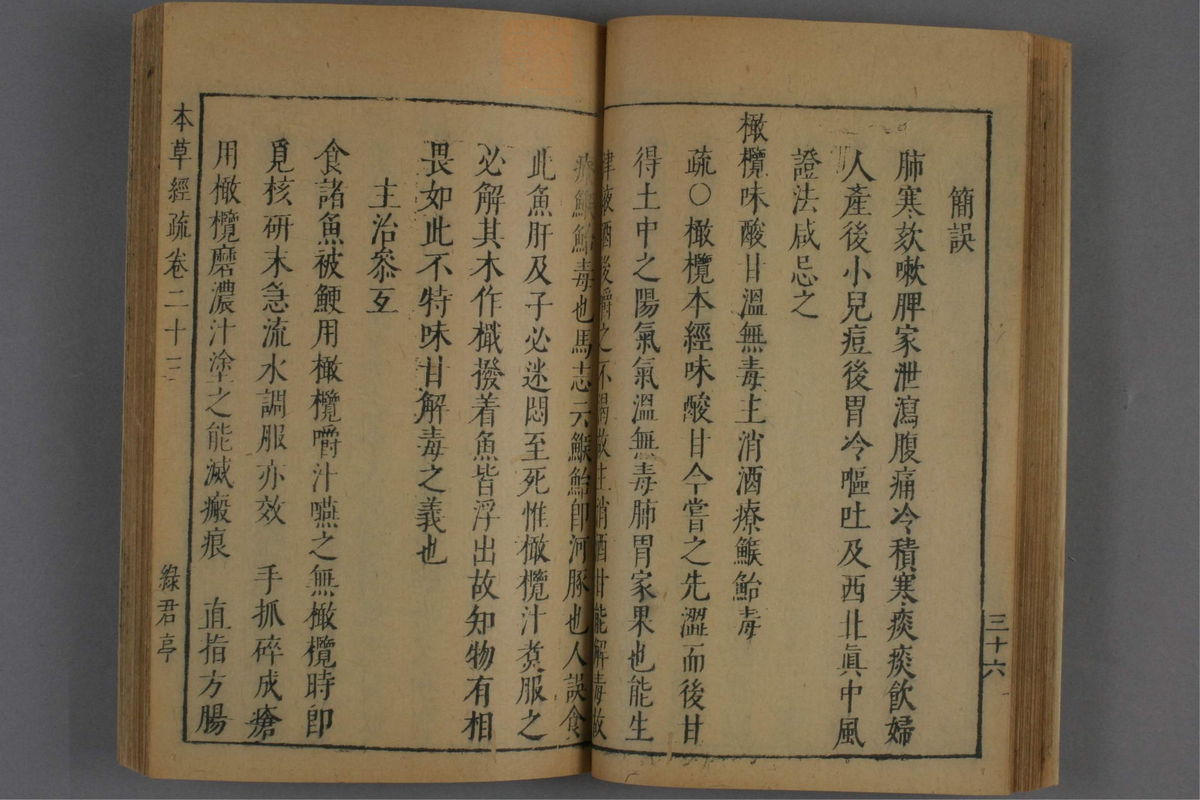 簡誤
肺寒欬嗽脾家泄瀉腹痛冷積寒痰痰飲婦
人產後小兒痘後胃冷嘔吐及西北眞中風
證法咸忌之
橄欖味酸甘溫無毒主消酒療鯸鮐毒
疏○橄欖本經味酸甘今嘗之先澀而後甘
得土中之陽氣氣溫無毒肺胃家果也能生
津液酒後嚼之不渴故主消酒甘能解毒故
療鯸鮐毒也馬志云鯸鮐卽河豚也人誤食
此魚肝及子必迷悶至死惟橄欖汁煑服之
必解其木作檝撥着魚皆浮出故知物有相
畏如此不特味甘解毒之義也
主治叅互
食諸魚被鯁用橄欖嚼汁嚥之無橄欖時卽
覓核研末急流水調服亦效　手抓碎成瘡
用橄欖磨濃汁塗之能滅瘢痕　直指方腸
本草經疏卷二十三
綠君亭
三十六